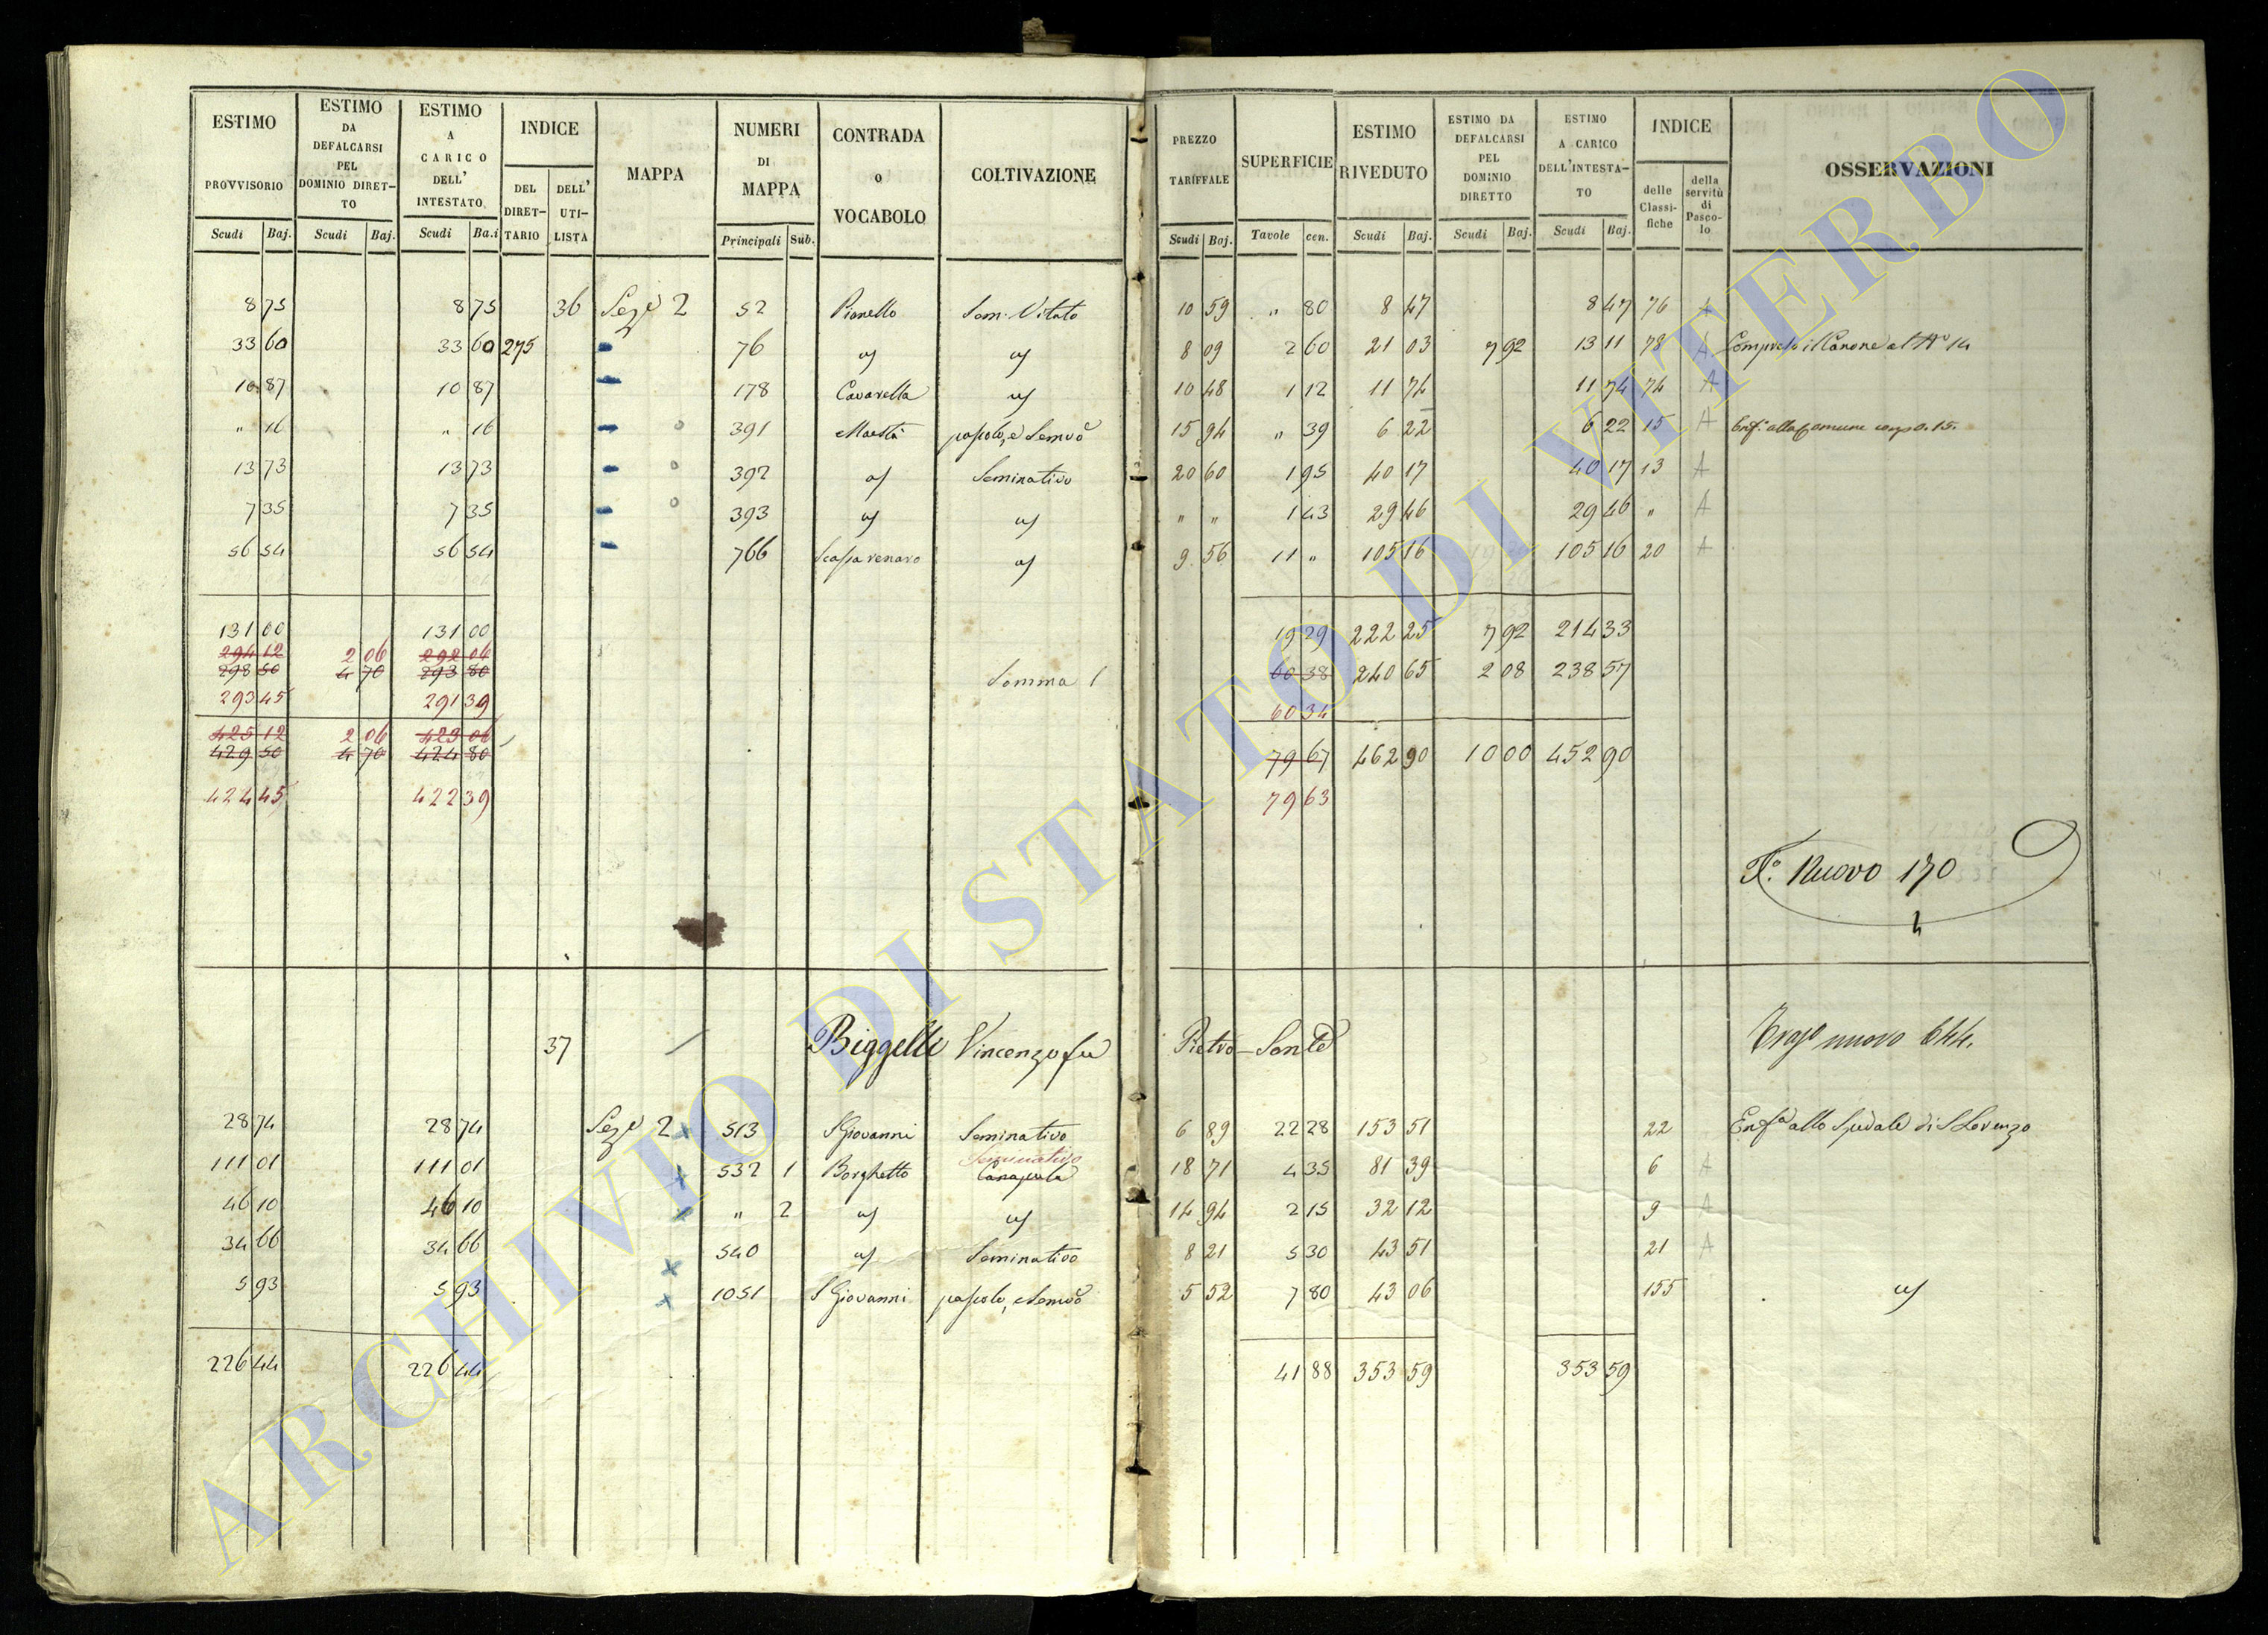 ESTIMO PROVVISORIO Scudi Baj.
ESTIMO DA DEFALCARSI PEL DOMINIO DIRET-TO Scudi Baj.
ESTIMO A CARICO DELL' INTESTATO Scudi Ba.i
INDICE DEL DIRET-TARIO DELL' UTI-LISTA
MAPPA
NUMERI DI MAPPA Principali Sub.
CONTRADA O VOCABOLO
COLTIVAZIONE
PREZZO TARIFFALE Scudi Boj.
SUPERFICIE Tavole cen.
ESTIMO RIVEDUTO Scudi Baj.
ESTIMO DA DEFALCARSI PEL DOMINIO DIRETTO Scudi Baj.
ESTIMO A CARICO DELL'INTESTA-TO Scudi Baj.
INDICE delle Classi-fiche della servitù di Pasco-lo
OSSERVAZIONI
8 75 8 75 36 Seze 2 52 Pianello Sem. Vitato 10 59 " 80 8 47 8 47 76 A
33 60 33 60 275 76 " " 8 09 2 60 21 03 7 92 13 11 78 A
10 87 10 87 178 Cavarella " 10 48 1 12 11 74 11 74 74 A
" 16 " 16 391 Maestà pascolo, e Semvo 15 94 " 39 6 22 6 22 15 A
13 73 13 73 392 " Seminativo 20 60 1 95 40 17 40 17 13 A
7 35 7 35 393 " " " " 1 43 29 46 29 46 " A
56 54 56 54 766 " 9 56 11 " 105 16 105 16 20 A
131 00 131 00 19 29 222 25 7 92 214 33
294 12 2 06 292 06
298 50 4 70 293 80 Somma 60 38 240 65 2 08 238 57
293 45 291 39 60 34
425 12 2 06 423 06
429 50 4 70 424 80 79 67 462 90 10 00 452 90
424 45 422 39 79 63
F.o Nuovo 170
37 Biggelli Vincenzo fu Pietro-Sante nuovo 644.
28 74 28 74 Seze 2 513 S Giovanni Seminativo 6 89 22 28 153 51 22 Enfa allo Spedale di S Lorenzo
Seminativo
111 01 111 01 532 1 Borghetto Canapule 18 71 4 35 81 39 6 A
46 10 46 10 " 2 " " 14 94 2 15 32 12 9 A
34 66 34 66 540 " Seminativo 8 21 5 30 43 51 21 A
5 93 5 93 1051 S Giovanni pascolo, e Semvo 5 52 7 80 43 06 155 "
226 44 226 44 41 88 353 59 353 59
ARCHIVIO DI STATO DI VITERBO